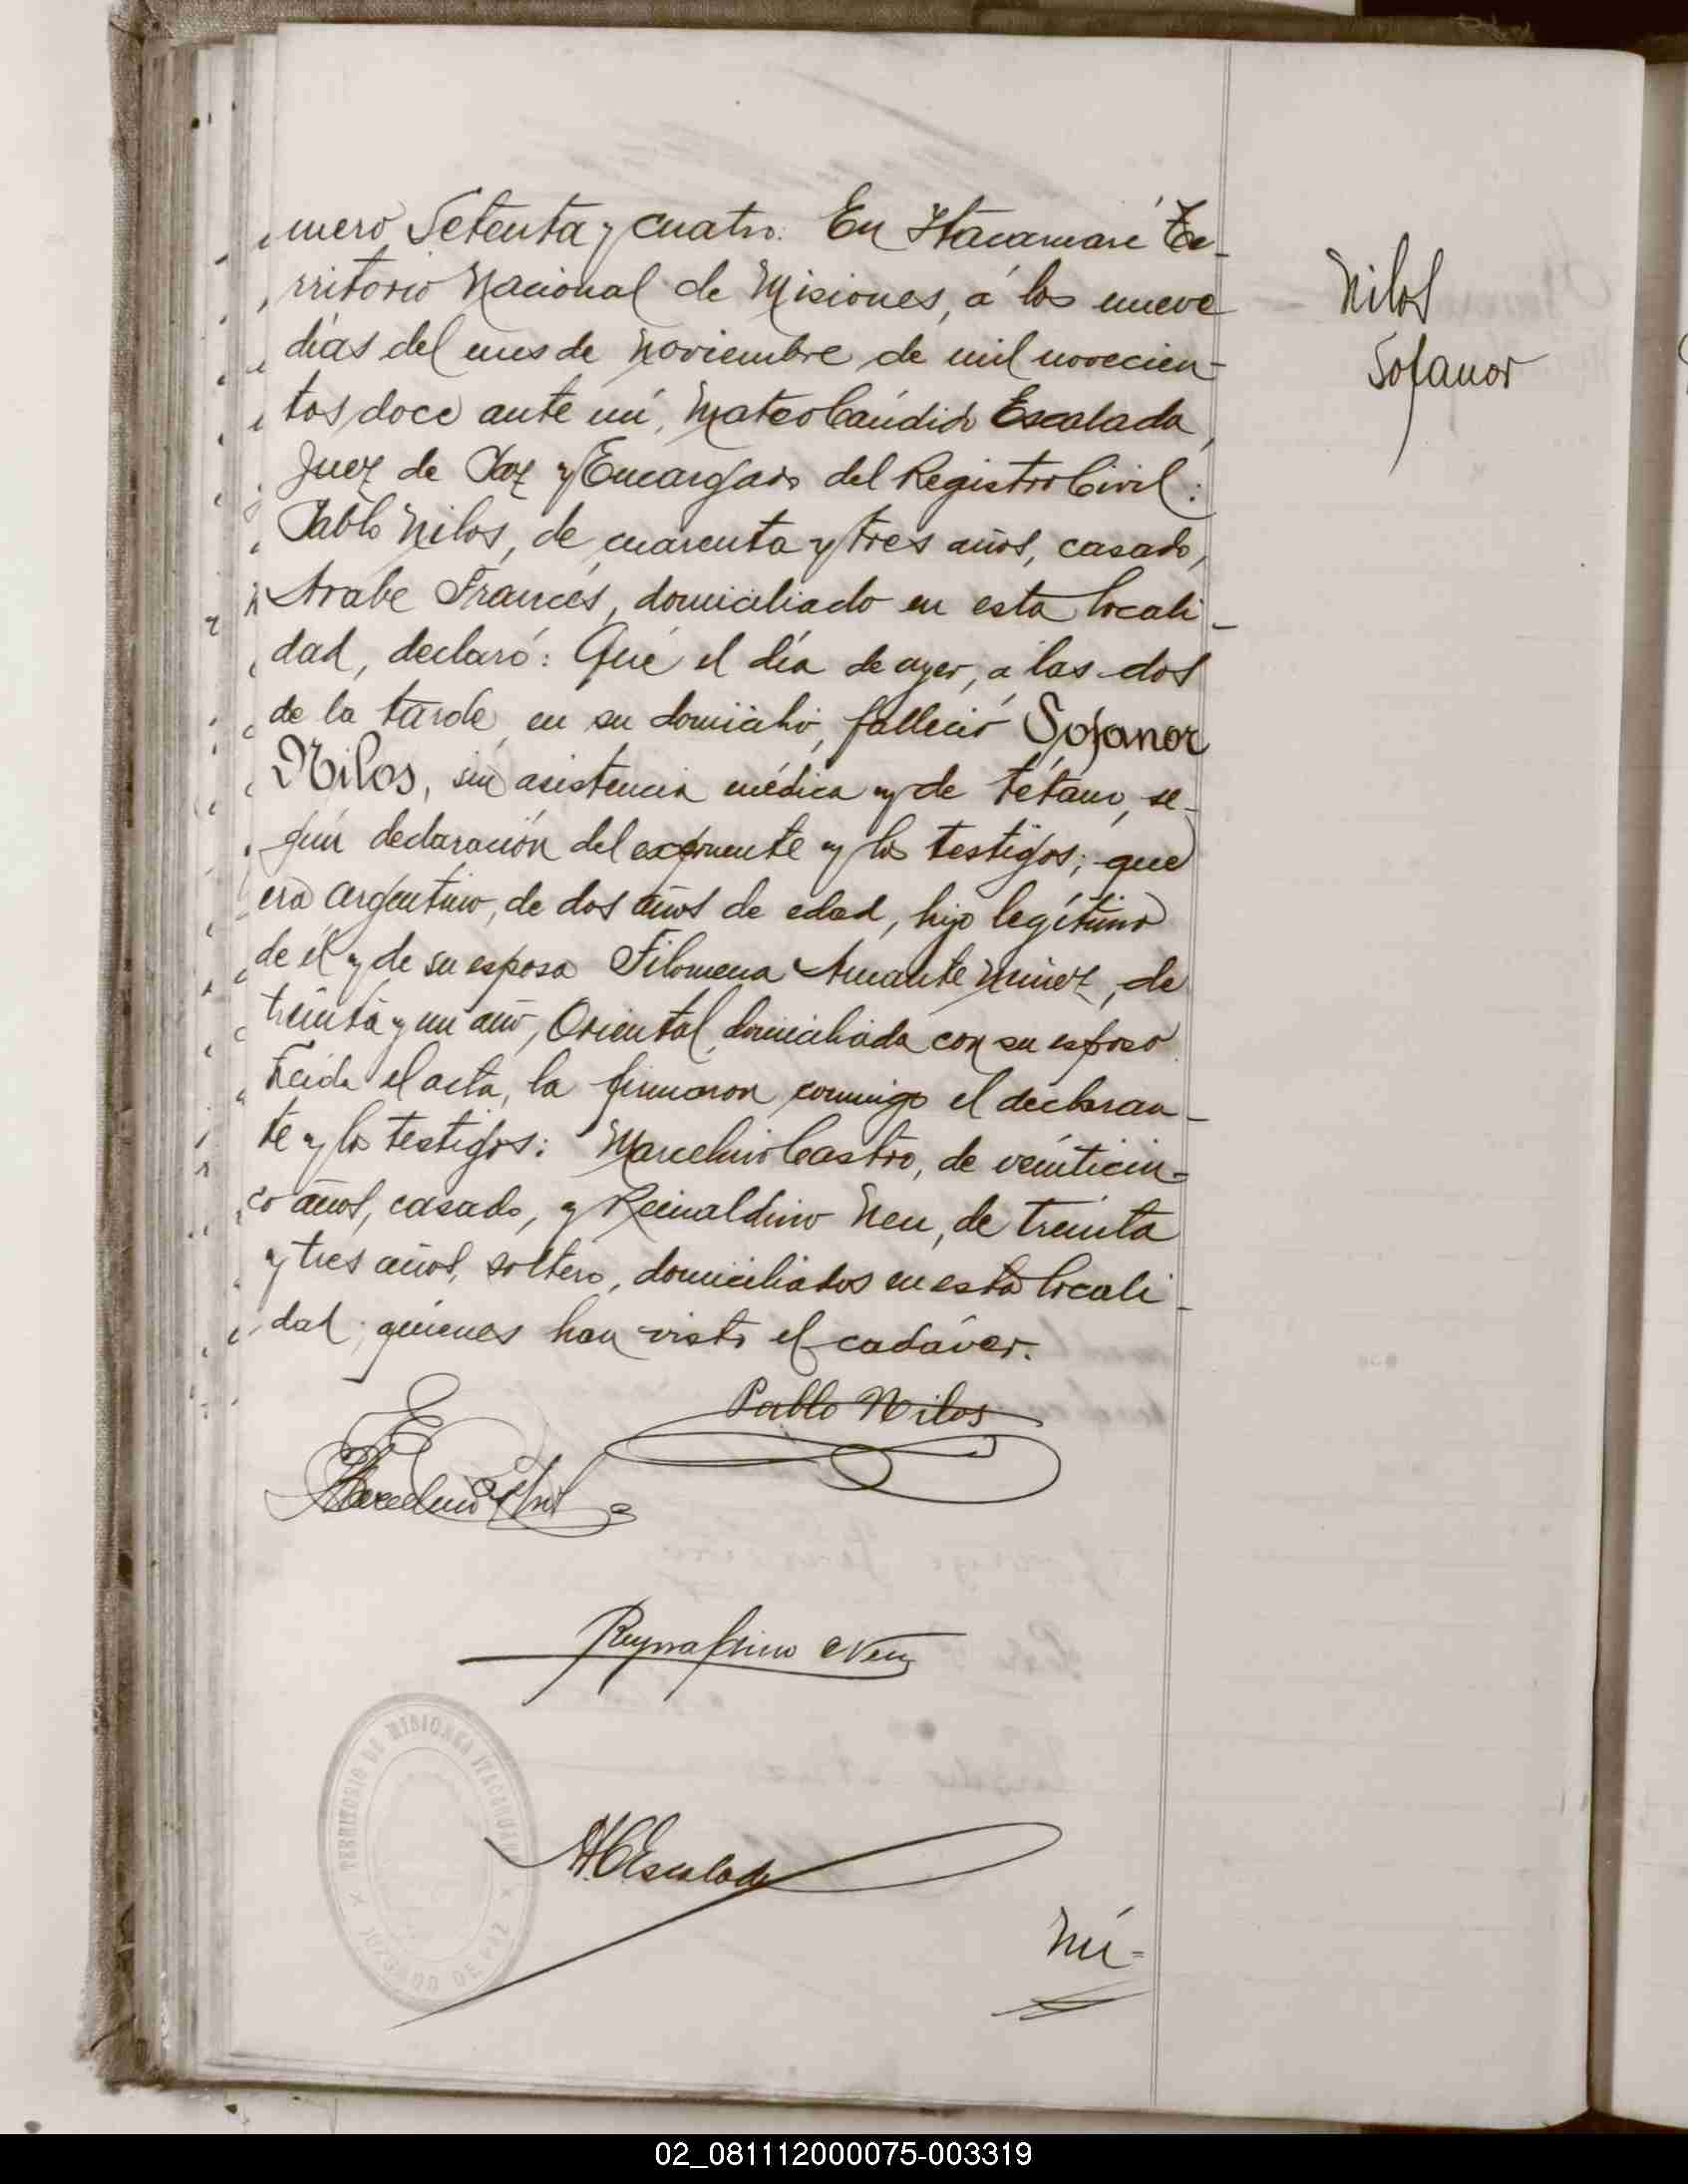 mero Setenta y cuatro. En Itacaruaré Te-
rritorio Nacional de Misiones, á los nueve
días del mes de Noviembre de mil novecien-
tos doce ante mí, Mateo Cándido Escalada,
Juez de Paz y Encargado del Registro Civil:
Pablo Nilos, de cuarenta y tres años, casado,
Arabe Francés, domiciliado en esta locali-
dad, declaró: Que el día de ayer, á las dos
de la tarde, en su domicilio, falleció Sofanor
Nilos, sin asistencia médica y de tétano, se-
gún declaración del exponente y los testigos; que
era argentino, de dos años de edad, hijo legítimo
de él y de su esposa Filomena Amante Núñez, de
treinta y un año, Oriental, domiciliada con su esposo.
Leída el acta, la firmaron conmigo el declaran-
te y los testigos: Marcelino Castro, de veinticin-
co años, casado, y Reinaldino Neu, de treinta
y tres años, soltero, domiciliados en esta locali-
dad; quienes han visto el cadáver.
Nilos
Sofanor
Pablo Nilos
Marcelino
Reynaldino Neu
TERRITORIO DE MISIONES
JUZGADO DE PAZ
M.C.Escalada
Nú-
02_081112000075-003319